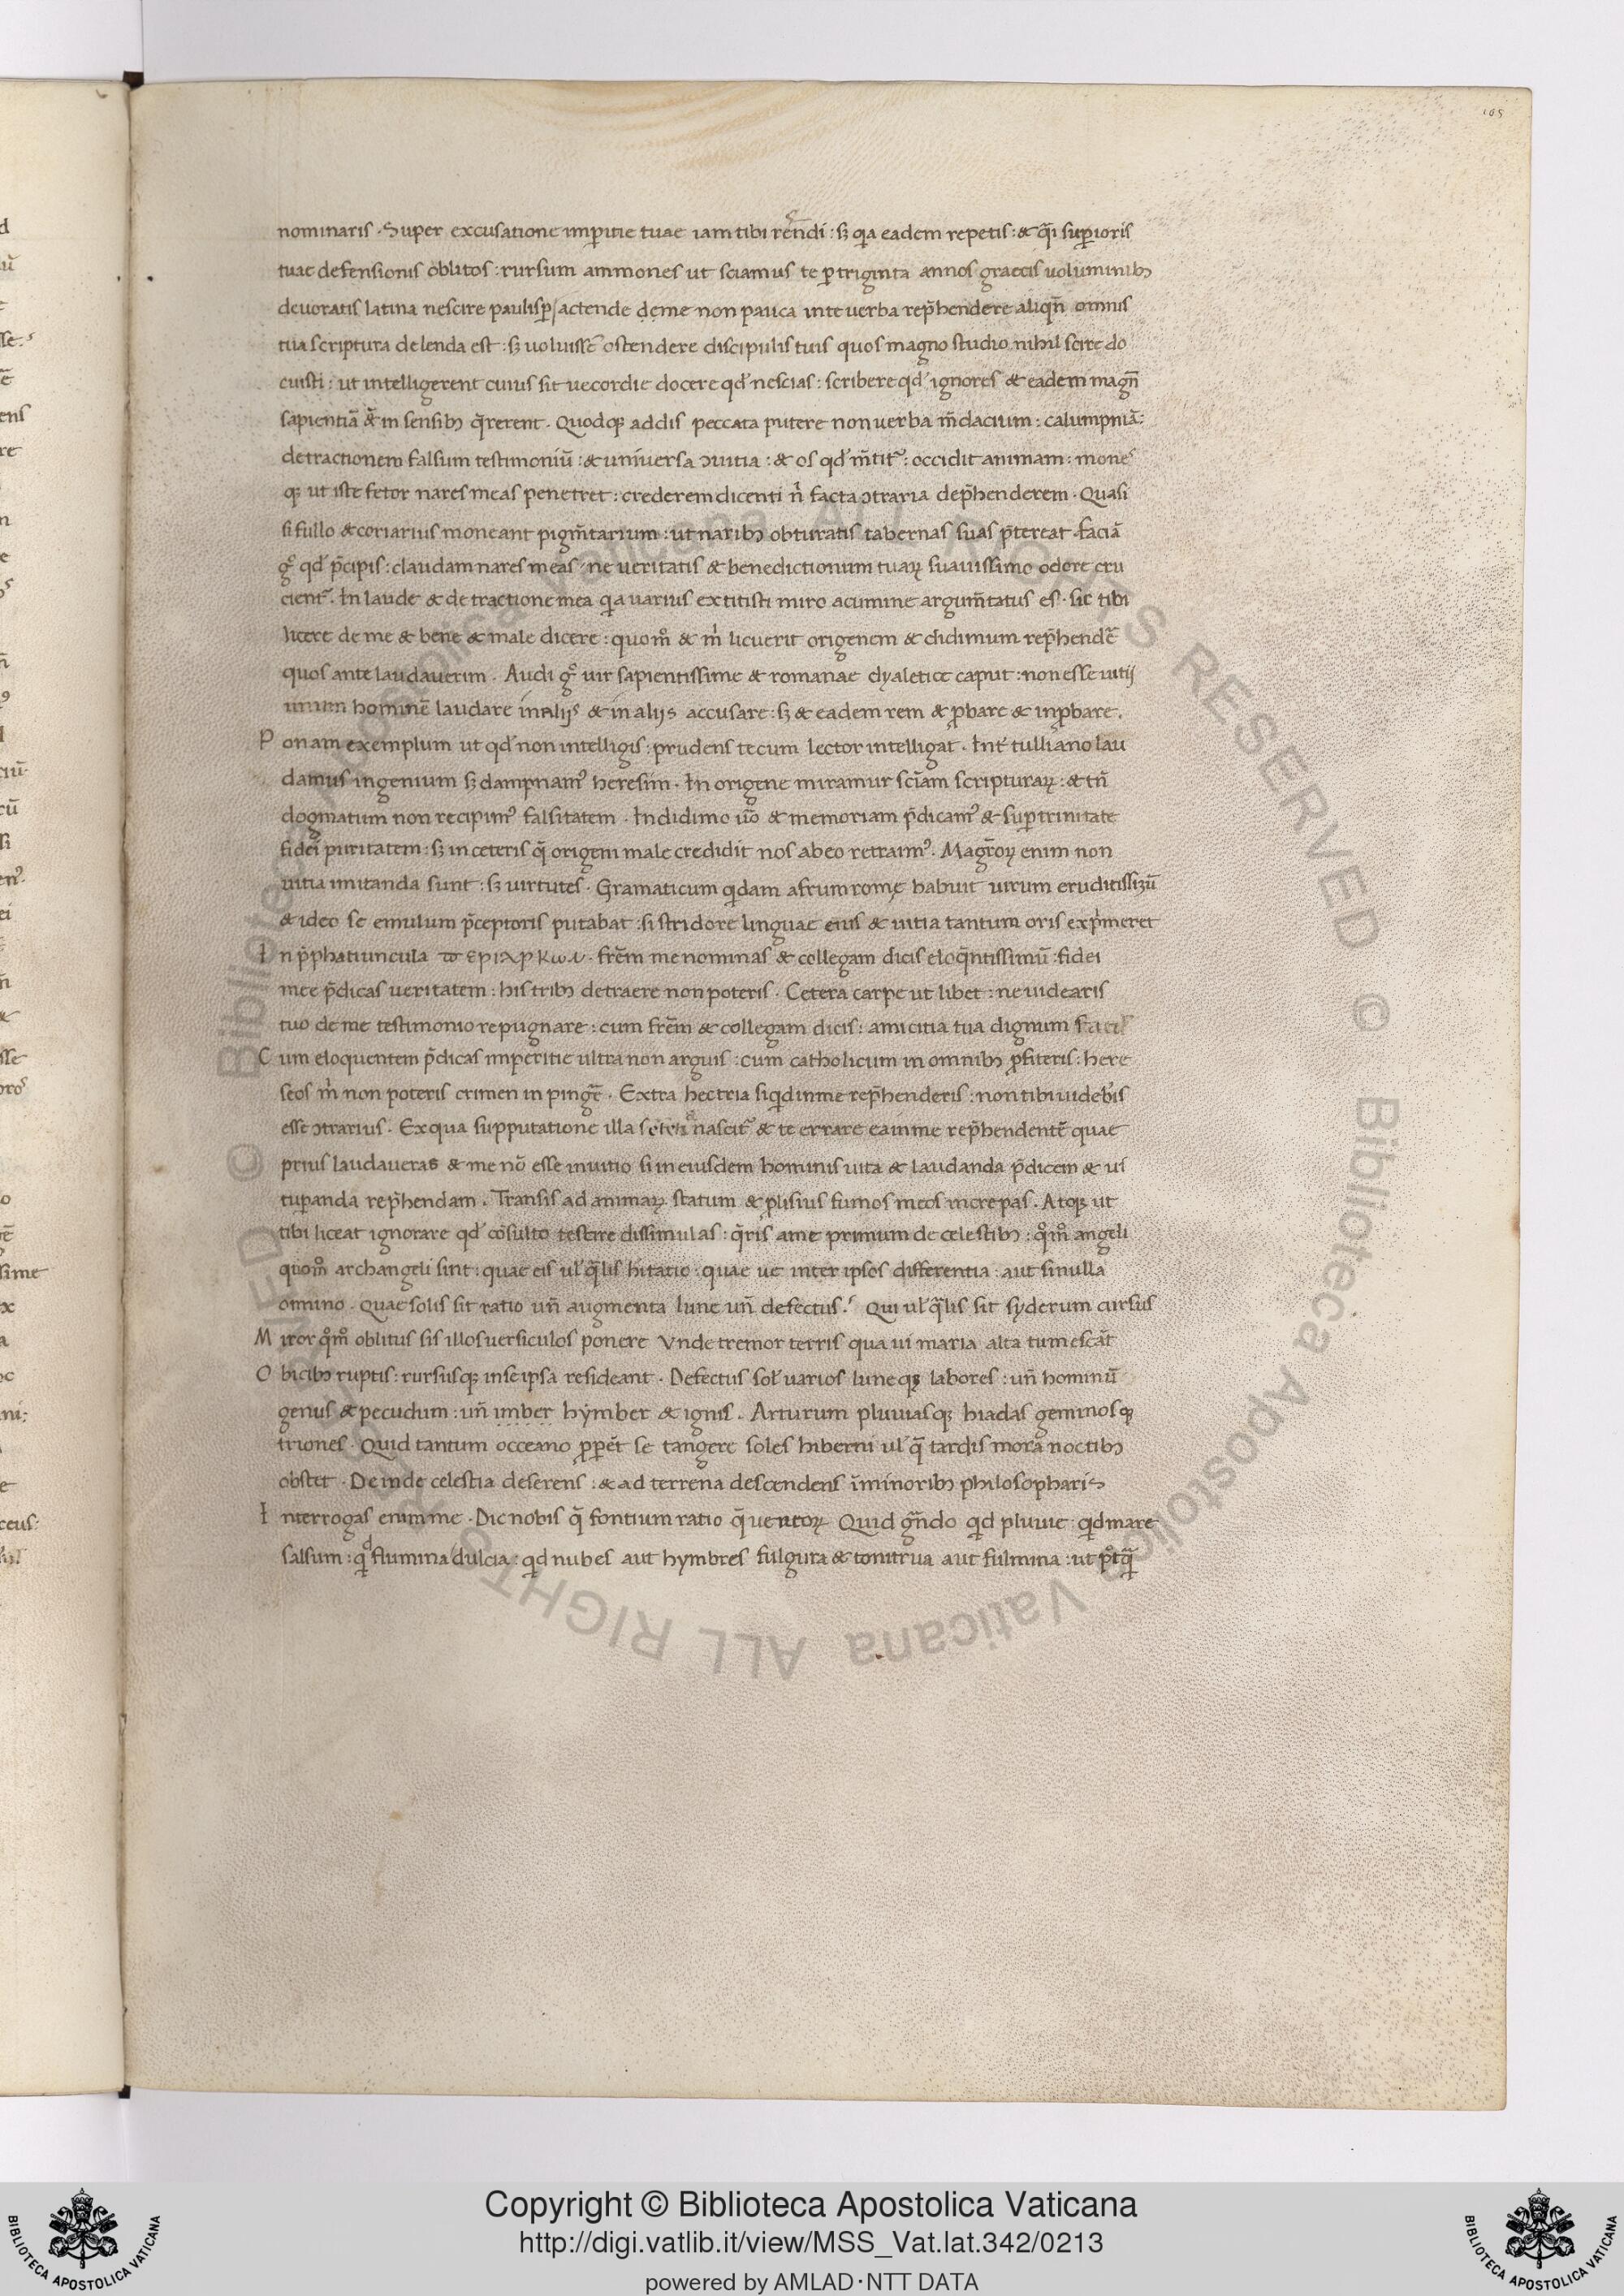 105
nominaris . Super excusatione imꝑitie tuae iam tibi rendi : sꝫ qia eadem repetis : & q̄i suꝑioris
tuae defensionis oblitos : rursum ammones ut sciamus te ꝑtriginta annos graecis uoluminibꝫ
devoratis latina nescire paulisꝑ / actende deme non pauca inte verba rep̄hendere aliqn̄ omnis
tua scriptura delenda est : sꝫ uoluisse ostendere discipulis tuis quos magno studio nihil scire do
cuisti : ut intelligerent cuius sit uecordie docere qd' nescias : scribere qd' ignores & eadem magn̄
sapientiā & in sensibꝫ q̄rerent . Quodqꝫ addis peccata putere non uerba m̄dacium : calumpniā :
detractionem falsum testimoniū : & universa ↄuitia : & os qd' m̄tit᷑ : occidit animam : mone
qꝫ ut iste fetor nares meas penetret : crederem dicenti n̓ facta ↄtraria dep̄henderem . Quasi
si fullo & coriarius moneant pigm̄tarium : ut naribꝫ obturatis tabernas suas p̄tereat . faciā
gͦ qd' p̄cipis : claudam nares meas / ne veritatis & benedictionum tuaꝝ suauissimo odore cru
cient᷑ . In laude & detractione mea qia varius extitisti miro acumine argum̄tatus es . sic tibi
licere de me & bene & male dicere : quomͦ & m̓ licuerit origenem & didimum rep̄hendē
quos ante laudauerim . Audi gͦ uir sapientissime & romanae dyaletice caput : non esse uitij
unum hominē laudare in alijs & in alijs accusare : sꝫ & eadem rem & ꝓbare & inꝓbare .
P onam exemplum ut qd' non intelligis : prudens tecum lector intelligat . Int' tulliano lau
damus ingenium sꝫ dampnamꝰ heresim . In origene miramur sciam scripturaꝝ : & tn̄
dogmatum non recipimꝰ falsitatem . In didimo uō & memoriam p̄dicamꝰ & suꝑ trinitate
fidei puritatem : sꝫ in ceteris q̄ origem male credidit nos abeo retraimꝰ . Magr̄oꝝ enim non
uitia imitanda sunt : sꝫ uirtutes . Gramaticum qidam afrum romę habuit uirum eruditissimū
& ideo se emulum p̄ceptoris putabat : si stridore linguae eius & uitia tantum oris exp̓meret
I n p̓phatiuncula . frēm me nominas & collegam dicis eloq̄ntissimū : fidei
mee p̄dicas ueritatem : his tribꝫ detraere non poteris . Cetera carpe ut libet : ne uidearis
tuo de me testimonio repugnare : cum frēm & collegam dicis : amicitia tua dignum facis
C um eloquentem p̄dicas imperitie ultra non arguis : cum catholicum in omnibꝫ ꝓfiteris : here
seos m̓ non poteris crimen in pingē . Extra hec tria siqid inme rep̄henderis : non tibi uideb̓is
esse ↄtrarius . Exqua supputatione illa nascit᷑ & te errare ea in me rep̄hendentē quae
prius laudaueras & me nō esse in uitio si in eiusdem hominis uita & laudanda p̄dicem & ui
tuꝑanda rep̄hendam . Transis ad animaꝝ statum & plusius fumos meos increpas . Atqꝫ ut
tibi liceat ignorare qd' cōsulto te scire dissimulas : q̄ris ame primum de celestibꝫ : qͦmͦ angeli
quomͦ archangeli sint : quae eis ul' q̄lis hitatio : quae ue inter ipsos differentia : aut si nulla
omino . Quae solis sit ratio un̄ augmenta lune un̄ defectus . Qui ul' q̄lis sit syderum cursus
M iror qͦmͦ oblitus sis illos uersiculos ponere Vnde tremor terris qua ui maria alta tumescāt
O bicibꝫ ruptis : rursusqꝫ in se ipsa resideant . Defectus sol' uarios luneqꝫ labores : un̄ hominū
genus & pecudum : un̄ imber hymber & ignis . Arturum pluuiasqꝫ hiadas geminosqꝫ
triones . Quid tantum occeano ꝓꝑēt se tangere soles hiberni ul' q̄ tardis mora noctibꝫ
obstet . Deinde celestia deserens : & ad terrena descendens īminoribꝫ philosopharis
I nterrogas enim me . Dic nobis q̄ fontium ratio q̄ uentoꝝ Quid grā̄ndo qid pluuie : qid mare
salsum : qid flumina dulcia : qid nubes aut hymbres fulgura & tonitrua aut fulmina : ut
Copyright © Biblioteca Apostolica Vaticana
http://digi.vatlib.it/view/MSS_Vat.lat.342/0213
powered by AMLAD·NTT DATA